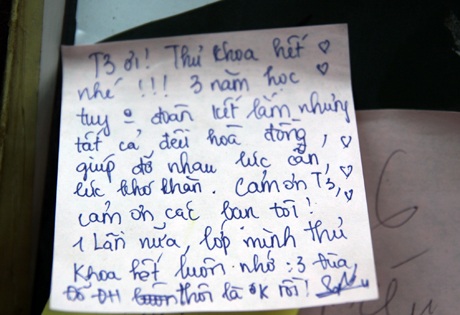 T3 ơi! Thủ khoa hết
nhé !!! 3 năm học
tuy ∘ đoàn kết lắm nhưng
tất cả đều hoà đồng,
giúp đỡ nhau lúc cần,
lúc khó khăn. Cảm ơn T3,
cảm ơn các bạn tôi!
1 lần nữa, lớp mình thủ
khoa hết luôn nhớ :3 Đùa,
Đỗ ĐH thôi là ok rồi!
6